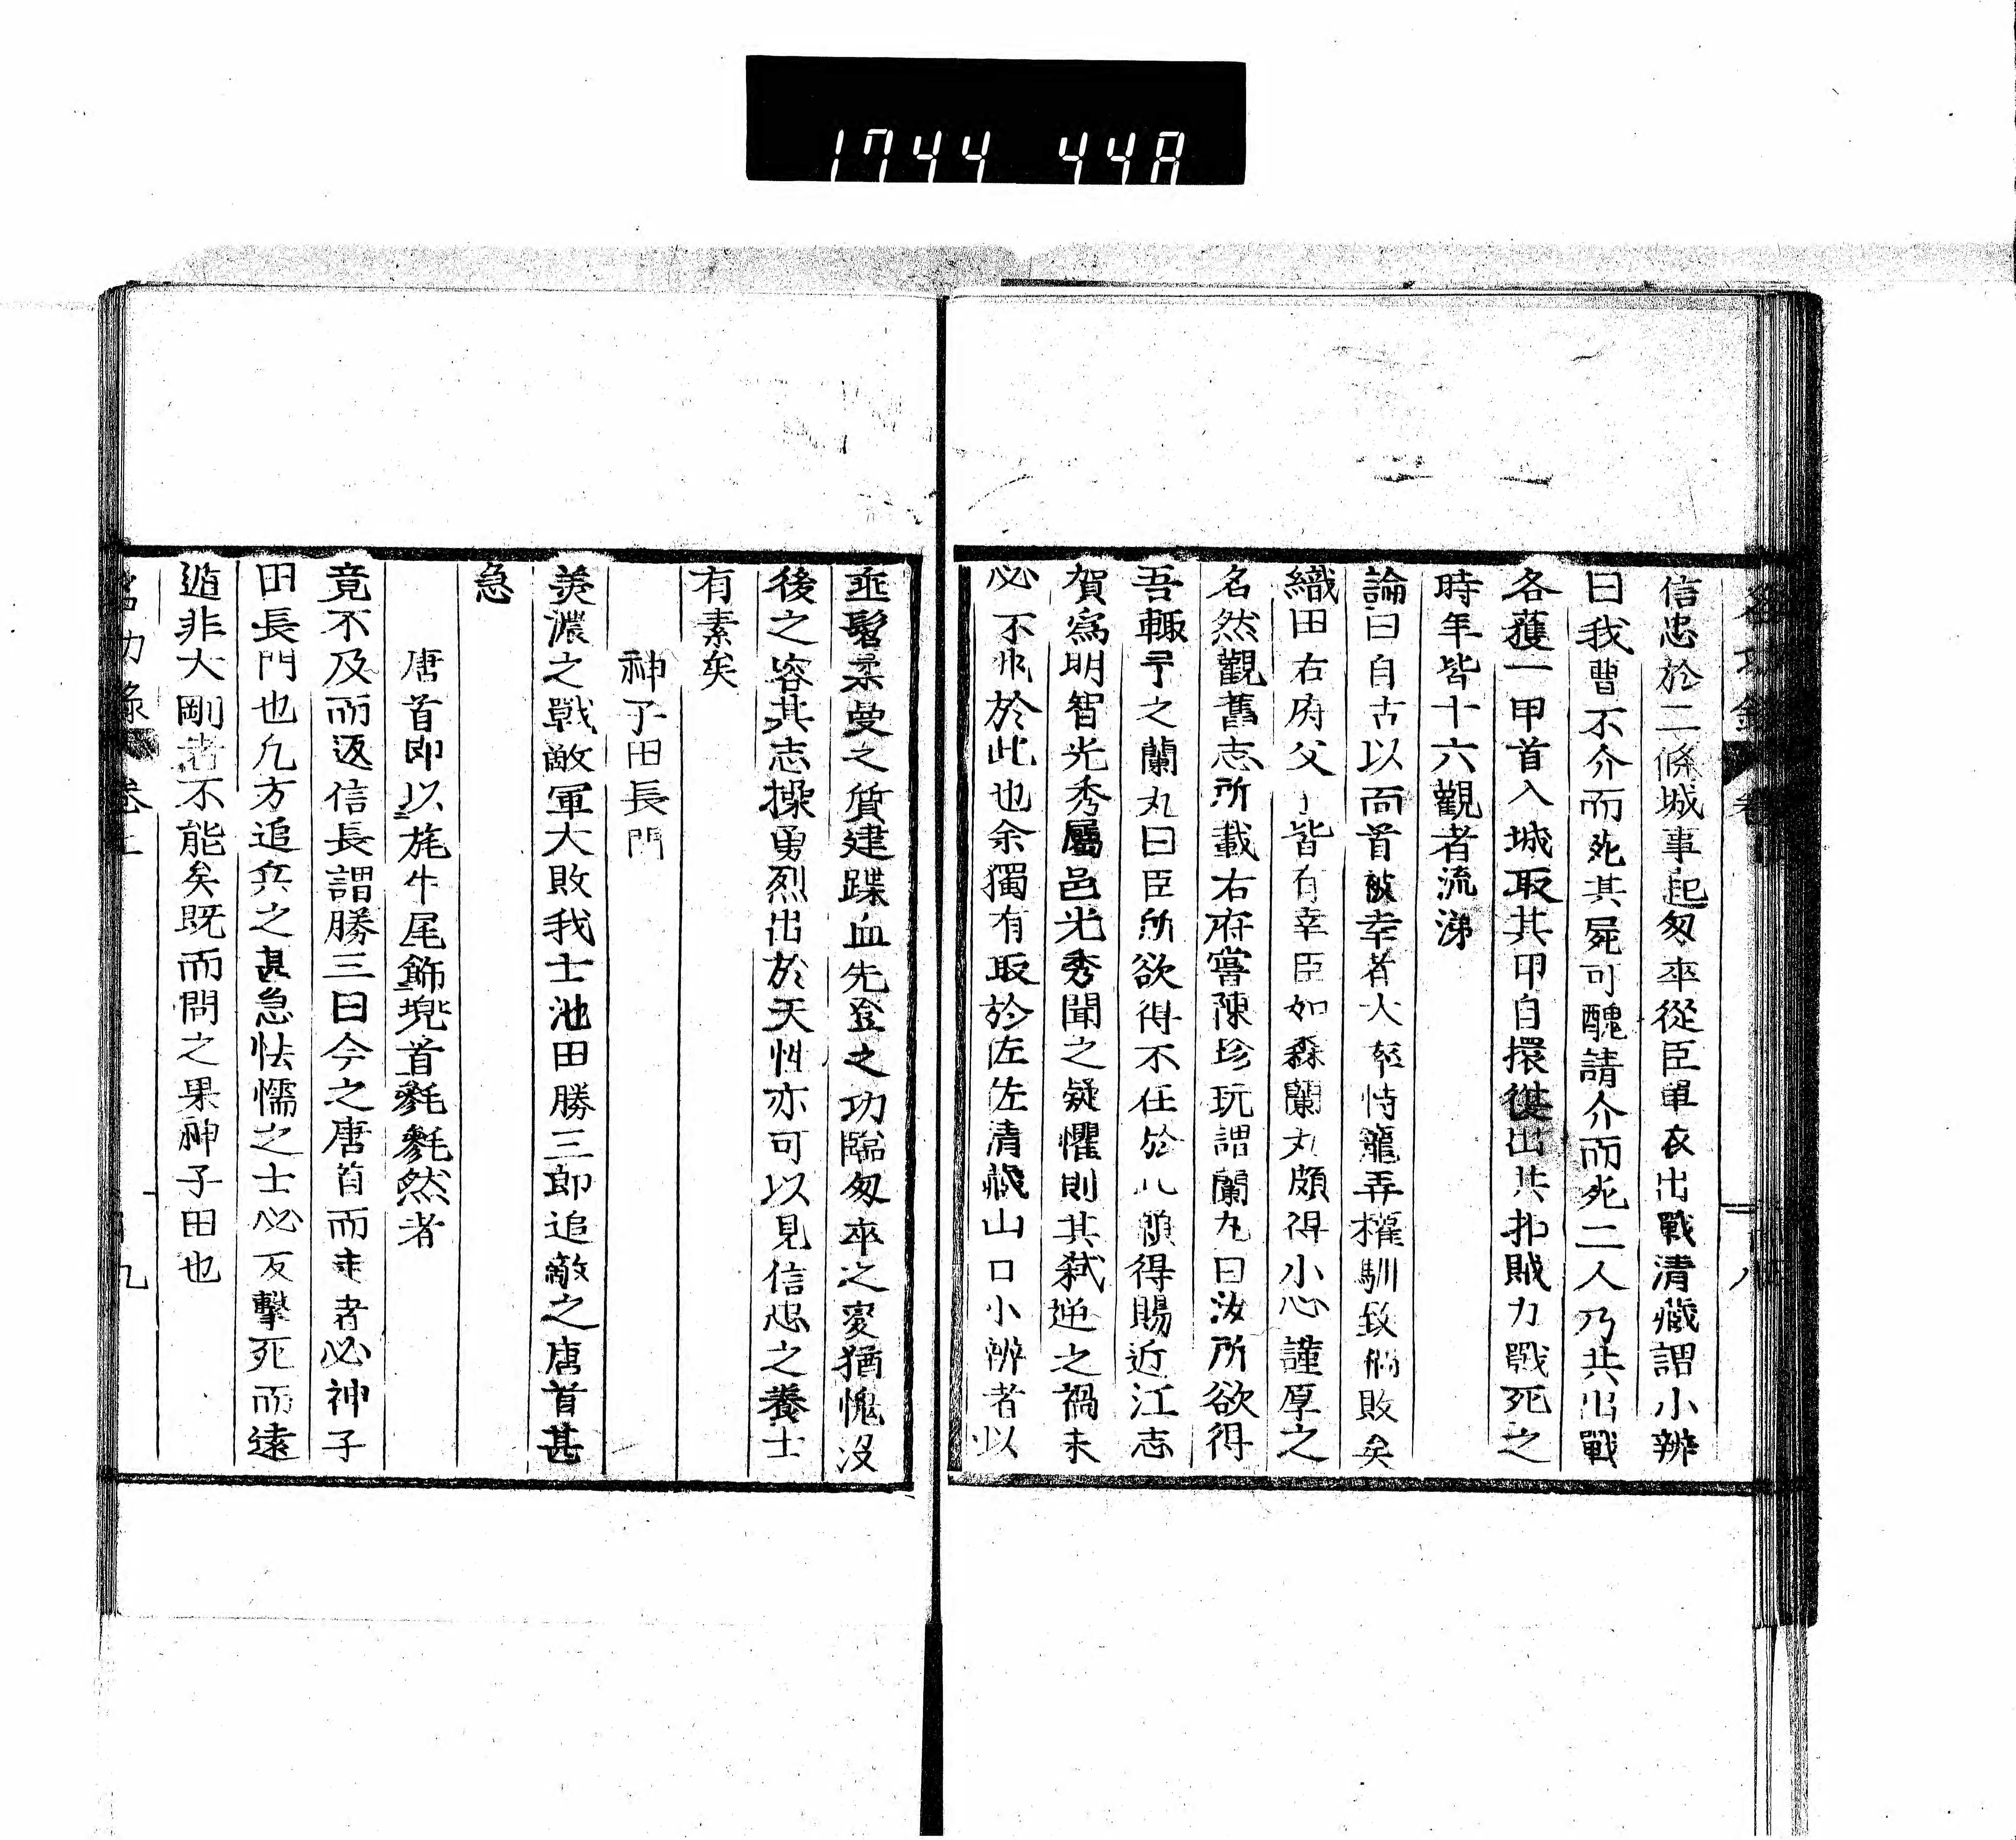 1744 448
信忠於二條城事起匆卒從臣單衣出戰清藏謂小辨
曰我曹不介而死其屍可醜請介而死二人乃共出戰
各獲一甲首入城取其甲自擐復出共扑賊力戰死之
時年皆十六觀者流涕
論曰自古以面首被幸者大率恃寵弄權馴致僨敗矣
織田右府父子皆有幸臣如森蘭丸頗得小心謹厚之
名然觀舊志所載右府嘗陳珍玩謂蘭丸曰汝所欲得
吾輙予之蘭丸曰臣所欲得不在於此願得賜近江志
賀爲明智光秀屬邑光秀聞之疑懼則其弑逆之禍未
必不由於此也余獨有取於佐佐清藏山口小辨者以
垂髫柔曼之質建蹀血先登之功臨匆卒之變猶愧沒
後之容其志操勇烈出於天性亦可以見信忠之養士
有素矣
神子田長門
美濃之戰敵軍大敗我士池田勝三郎追敵之唐首甚
急
唐首即以旄牛尾飾兠首毿毿然者
竟不及而返信長謂勝三曰今之唐首而走者必神子
田長門也凡方追兵之甚急怯懦之士必反擊死而遠
遁非大剛者不能矣既而問之果神子田也
名功錄 卷上 九